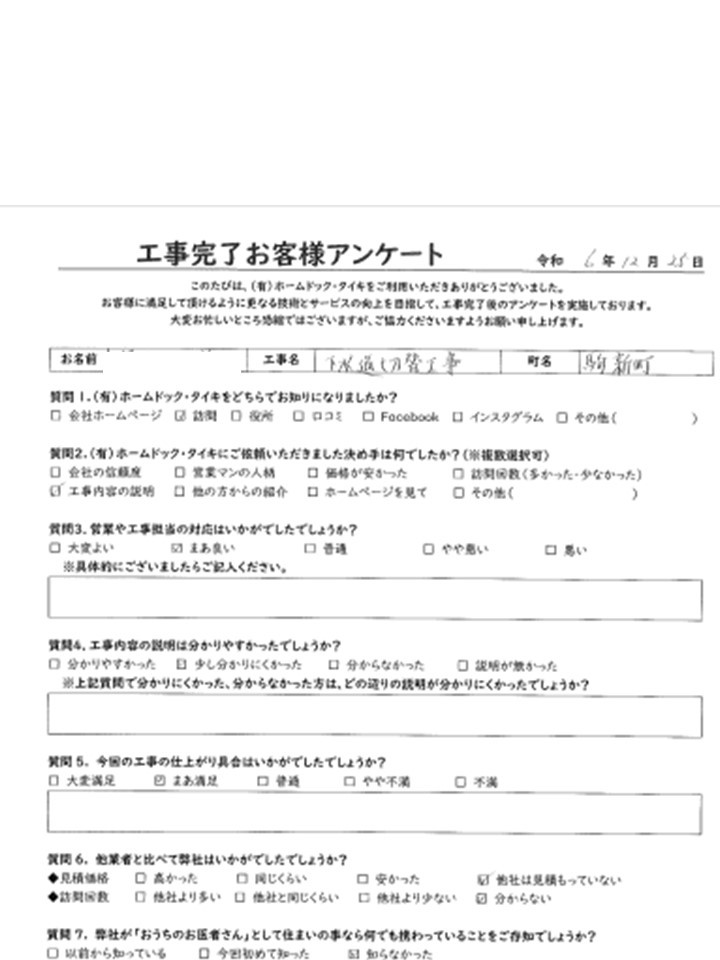 工事完了お客様アンケート 令和 6年12月25日
このたびは、(有)ホームドック・タイキをご利用いただきありがとうございました。
お客様に満足して頂けるように更なる技術とサービスの向上を目指して、工事完了後のアンケートを実施しております。
大変お忙しいところ恐縮ではございますが、ご協力くださいますようお願い申し上げます。
お名前 工事名 下水道切替工事 町名 駒新町
質問1.(有)ホームドック・タイキをどちらでお知りになりましたか?
□ 会社ホームページ ☑ 訪問 □ 役所 □ 口コミ □ Facebook □ インスタグラム □ その他( )
質問2.(有)ホームドック・タイキにご依頼いただきました決め手は何でしたか?(※複数選択可)
□ 会社の信頼度 □ 営業マンの人柄 □ 価格が安かった □ 訪問回数(多かった・少なかった)
☑ 工事内容の説明 □ 他の方からの紹介 □ ホームページを見て □ その他( )
質問3.営業や工事担当の対応はいかがでしたでしょうか?
□ 大変よい ☑ まあ良い □ 普通 □ やや悪い □ 悪い
※具体的にございましたらご記入ください。
質問4.工事内容の説明は分かりやすかったでしょうか?
□ 分かりやすかった ☑ 少し分かりにくかった □ 分からなかった □ 説明が無かった
※上記質問で分かりにくかった、分からなかった方は、どの辺りの説明が分かりにくかったでしょうか?
質問5. 今回の工事の仕上がり具合はいかがでしたでしょうか?
□ 大変満足 ☑ まあ満足 □ 普通 □ やや不満 □ 不満
質問6. 他業者と比べて弊社はいかがでしたでしょうか?
◆見積価格 □ 高かった □ 同じくらい □ 安かった ☑ 他社は見積もっていない
◆訪問回数 □ 他社より多い □ 他社と同じくらい □ 他社より少ない ☑ 分からない
質問7. 弊社が「おうちのお医者さん」として住まいの事なら何でも携わっていることをご存知でしょうか?
□ 以前から知っている □ 今回初めて知った ☑ 知らなかった